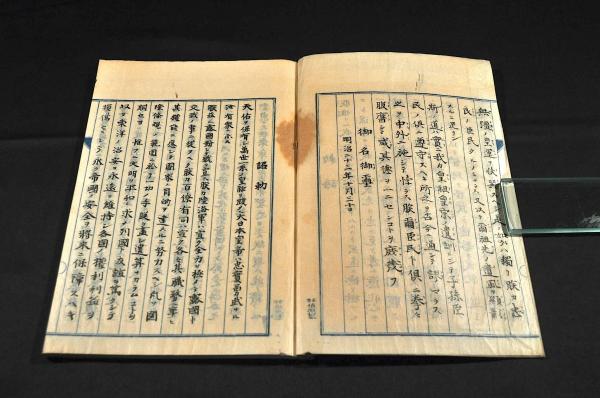 無窮ノ皇運ヲ扶翼スヘシ是ノ如キハ獨リ朕カ忠
民ノ臣民タルノミナラス又以テ爾祖先ノ遺風ヲ顯彰
スルニ足ラン
斯ノ道ハ實ニ我カ皇祖皇宗ノ遺訓ニシテ子孫臣
民ノ倶ニ遵守スヘキ所之ヲ古今ニ通シテ謬ラス
之ヲ中外ニ施シテ悖ラス朕爾臣民ト倶ニ拳々
服膺シテ咸其德ヲ一ニセンコトヲ庶幾フ
御名御璽
明治二十三年十月三十日
詔勅
天佑ヲ保有シ萬世一系ノ皇祚ヲ践メル大日本國皇帝ハ忠實勇武ナル
汝有衆ニ示ス
朕茲ニ露國ニ對シテ戰ヲ宣ス朕カ陸海軍ハ宜ク全力ヲ極メテ露國ト
交戰ノ事ニ從フヘク朕カ百僚有司ハ宜ク各々其職務ニ率ヒ
其權能ニ應シテ國家ノ目的ヲ達スルニ努力スヘシ凡ソ國
際條規ノ範圍ニ於テ一切ノ手段ヲ盡シ遺算ナカラムコトヲ
期セヨ惟フニ文明ヲ平和ニ求メ列國ト友誼ヲ篤クシテ
以テ東洋ノ治安ヲ永遠ニ維持シ各國ノ權利利益ヲ
損傷セスシテ永ク帝國ノ安全ヲ將來ニ保障スヘキ